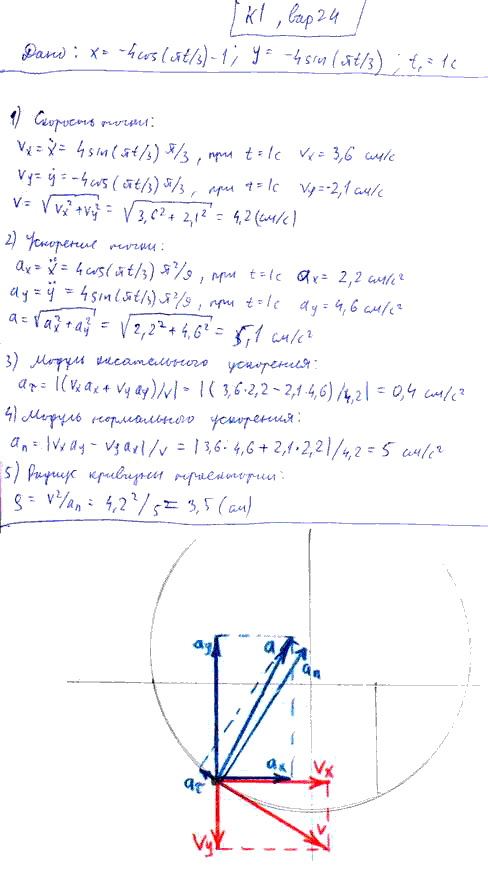 К1, вар 24
Дано: x = -4cos(πt/3)-1; y = -4sin(πt/3); t₁ = 1c
1) Скорость точки:
Vx = ẋ = 4sin(πt/3) π/3, при t=1c Vx = 3,6 см/с
Vy = ẏ = -4cos(πt/3) π/3, при t=1c Vy = -2,1 см/с
V = √(Vx² + Vy²) = √(3,6² + 2,1²) = 4,2 (см/с)
2) Ускорение точки:
ax = ẍ = 4cos(πt/3) π²/9, при t=1c ax = 2,2 см/с²
ay = ÿ = 4sin(πt/3) π²/9, при t=1c ay = 4,6 см/с²
a = √(ax² + ay²) = √(2,2² + 4,6²) = 5,1 см/с²
3) Модуль касательного ускорения:
aτ = |(Vx ax + Vy ay)/V| = |(3,6·2,2 - 2,1·4,6)/4,2| = 0,4 см/с²
4) Модуль нормального ускорения:
an = |Vx ay - Vy ax|/V = |3,6·4,6 + 2,1·2,2|/4,2 = 5 см/с²
5) Радиус кривизны траектории:
ρ = V²/an = 4,2²/5 = 3,5 (см)
ay a an
aτ ax Vx
Vy V